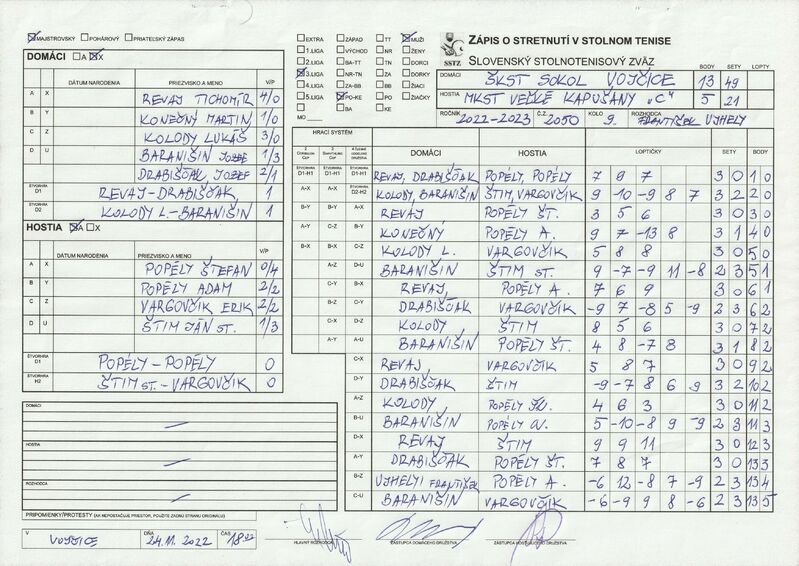 MAJSTROVSKÝ POHÁROVÝ PRIATEĽSKÝ ZÁPAS
DOMÁCI A X
DÁTUM NARODENIA PRIEZVISKO A MENO V/P
A X REVAJ TICHOMÍR 4/0
B Y KONEČNÝ MARTIN 1/0
C Z KOLODY LUKÁŠ 3/0
D U BARANIŠIN JOZEF 1/3
DRABIŠČAK JOZEF 2/1
ŠTVORHRA D1 REVAJ-DRABIŠČAK 1
ŠTVORHRA D2 KOLODY L.-BARANIŠIN 1
HOSTIA A X
DÁTUM NARODENIA PRIEZVISKO A MENO V/P
A X POPÉLY ŠTEFAN 0/4
B Y POPÉLY ADAM 2/2
C Z VARGOVČIK ERIK 2/2
D U ŠTIM JÁN ST. 1/3
ŠTVORHRA D1 POPÉLY-POPÉLY 0
ŠTVORHRA H2 ŠTIM ST.-VARGOVČIK 0
DOMÁCI
HOSTIA
ROZHODCA
PRIPOMIENKY/PROTESTY (AK NEPOSTAČUJE PRIESTOR, POUŽITE ZADNÚ STRANU ORIGINÁLU)
V VOJČICE DŇA 24.11.2022 ČAS 18:00
EXTRA ZÁPAD TT MUŽI
1.LIGA VÝCHOD NR ŽENY
2.LIGA BA-TT TN DORCI
3.LIGA NR-TN ZA DORKY
4.LIGA ZA-BB BB ŽIACI
5.LIGA PO-KE PO ŽIAČKY
BA KE
MO
SSTZ
ZÁPIS O STRETNUTÍ V STOLNOM TENISE
SLOVENSKÝ STOLNOTENISOVÝ ZVÄZ
BODY SETY LOPTY
DOMÁCI ŠKST SOKOL VOJČICE 13 49
HOSTIA MKST VEĽKÉ KAPUŠANY "C" 5 21
ROČNÍK 2022-2023 Č.Z. 2050 KOLO 9. ROZHODCA FRANTIŠEK UJHELY
HRACÍ SYSTÉM
DOMÁCI HOSTIA LOPTIČKY SETY BODY
ŠTVORHRA D1-H1 REVAJ, DRABIŠČAK POPÉLY, POPÉLY 7 9 7 3 0 1 0
ŠTVORHRA D2-H2 KOLODY, BARANIŠIN ŠTIM, VARGOVČIK 9 -10 -9 8 7 3 2 2 0
A-X B-Y A-X REVAJ POPÉLY ŠT. 3 5 6 3 0 3 0
A-Y C-Z B-Y KONEČNÝ POPÉLY A. 9 7 -13 8 3 1 4 0
B-X B-X C-Z KOLODY L. VARGOVČIK 5 8 8 3 0 5 0
A-Z D-U BARANIŠIN ŠTIM ST. 9 -7 -9 11 -8 2 3 5 1
C-Y B-X REVAJ POPÉLY A. 7 6 9 3 0 6 1
B-Z C-Y DRABIŠČAK VARGOVČIK -9 7 -8 5 -9 2 3 6 2
C-X D-Z KOLODY ŠTIM 8 5 6 3 0 7 2
A-Y A-U BARANIŠIN POPÉLY ŠT. 4 8 -7 8 3 1 8 2
C-X REVAJ VARGOVČIK 5 8 7 3 0 9 2
D-Y DRABIŠČAK ŠTIM -9 -7 8 6 9 3 2 10 2
A-Z KOLODY POPÉLY 4 6 3 3 0 11 2
B-U BARANIŠIN POPÉLY 5 -10 -8 9 -9 2 3 11 3
D-X REVAJ ŠTIM 9 9 11 3 0 12 3
A-Y DRABIŠČAK POPÉLY ŠT. 7 8 7 3 0 13 3
B-Z UJHELYI FRANTIŠEK POPÉLY A. -6 12 -8 7 -9 2 3 13 4
C-U BARANIŠIN VARGOVČIK -6 -9 9 8 -6 2 3 13 5
HLAVNÝ ROZHODCA ZÁSTUPCA DOMÁCEHO DRUŽSTVA ZÁSTUPCA HOSŤUJÚCEHO DRUŽSTVA